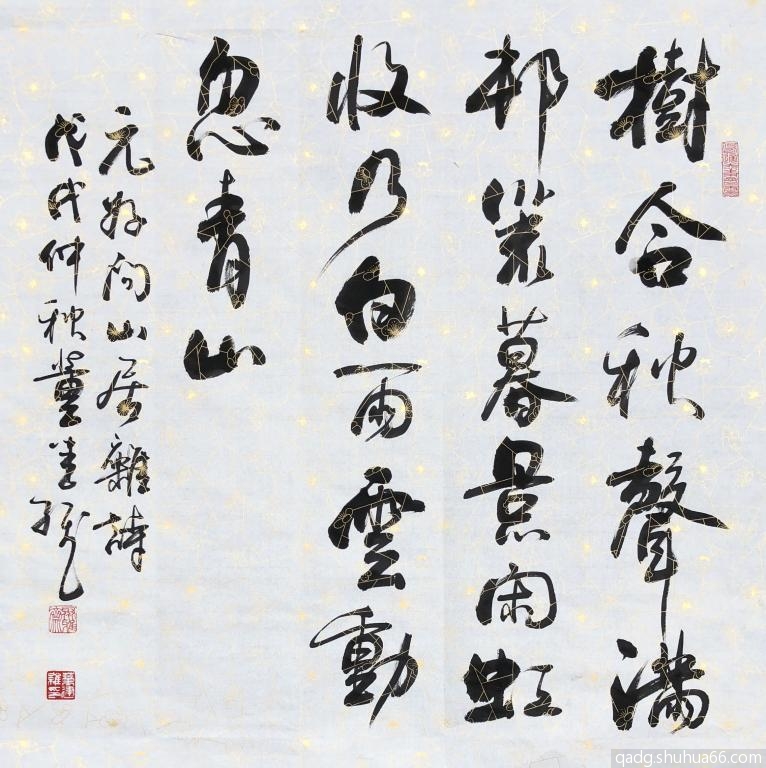 樹合秋聲滿
邨荒暮景闲虹
收乃白雨雲動
忽青山
元好问山居雜詩
戊戌仲秋董
qadg.shuhua66.com